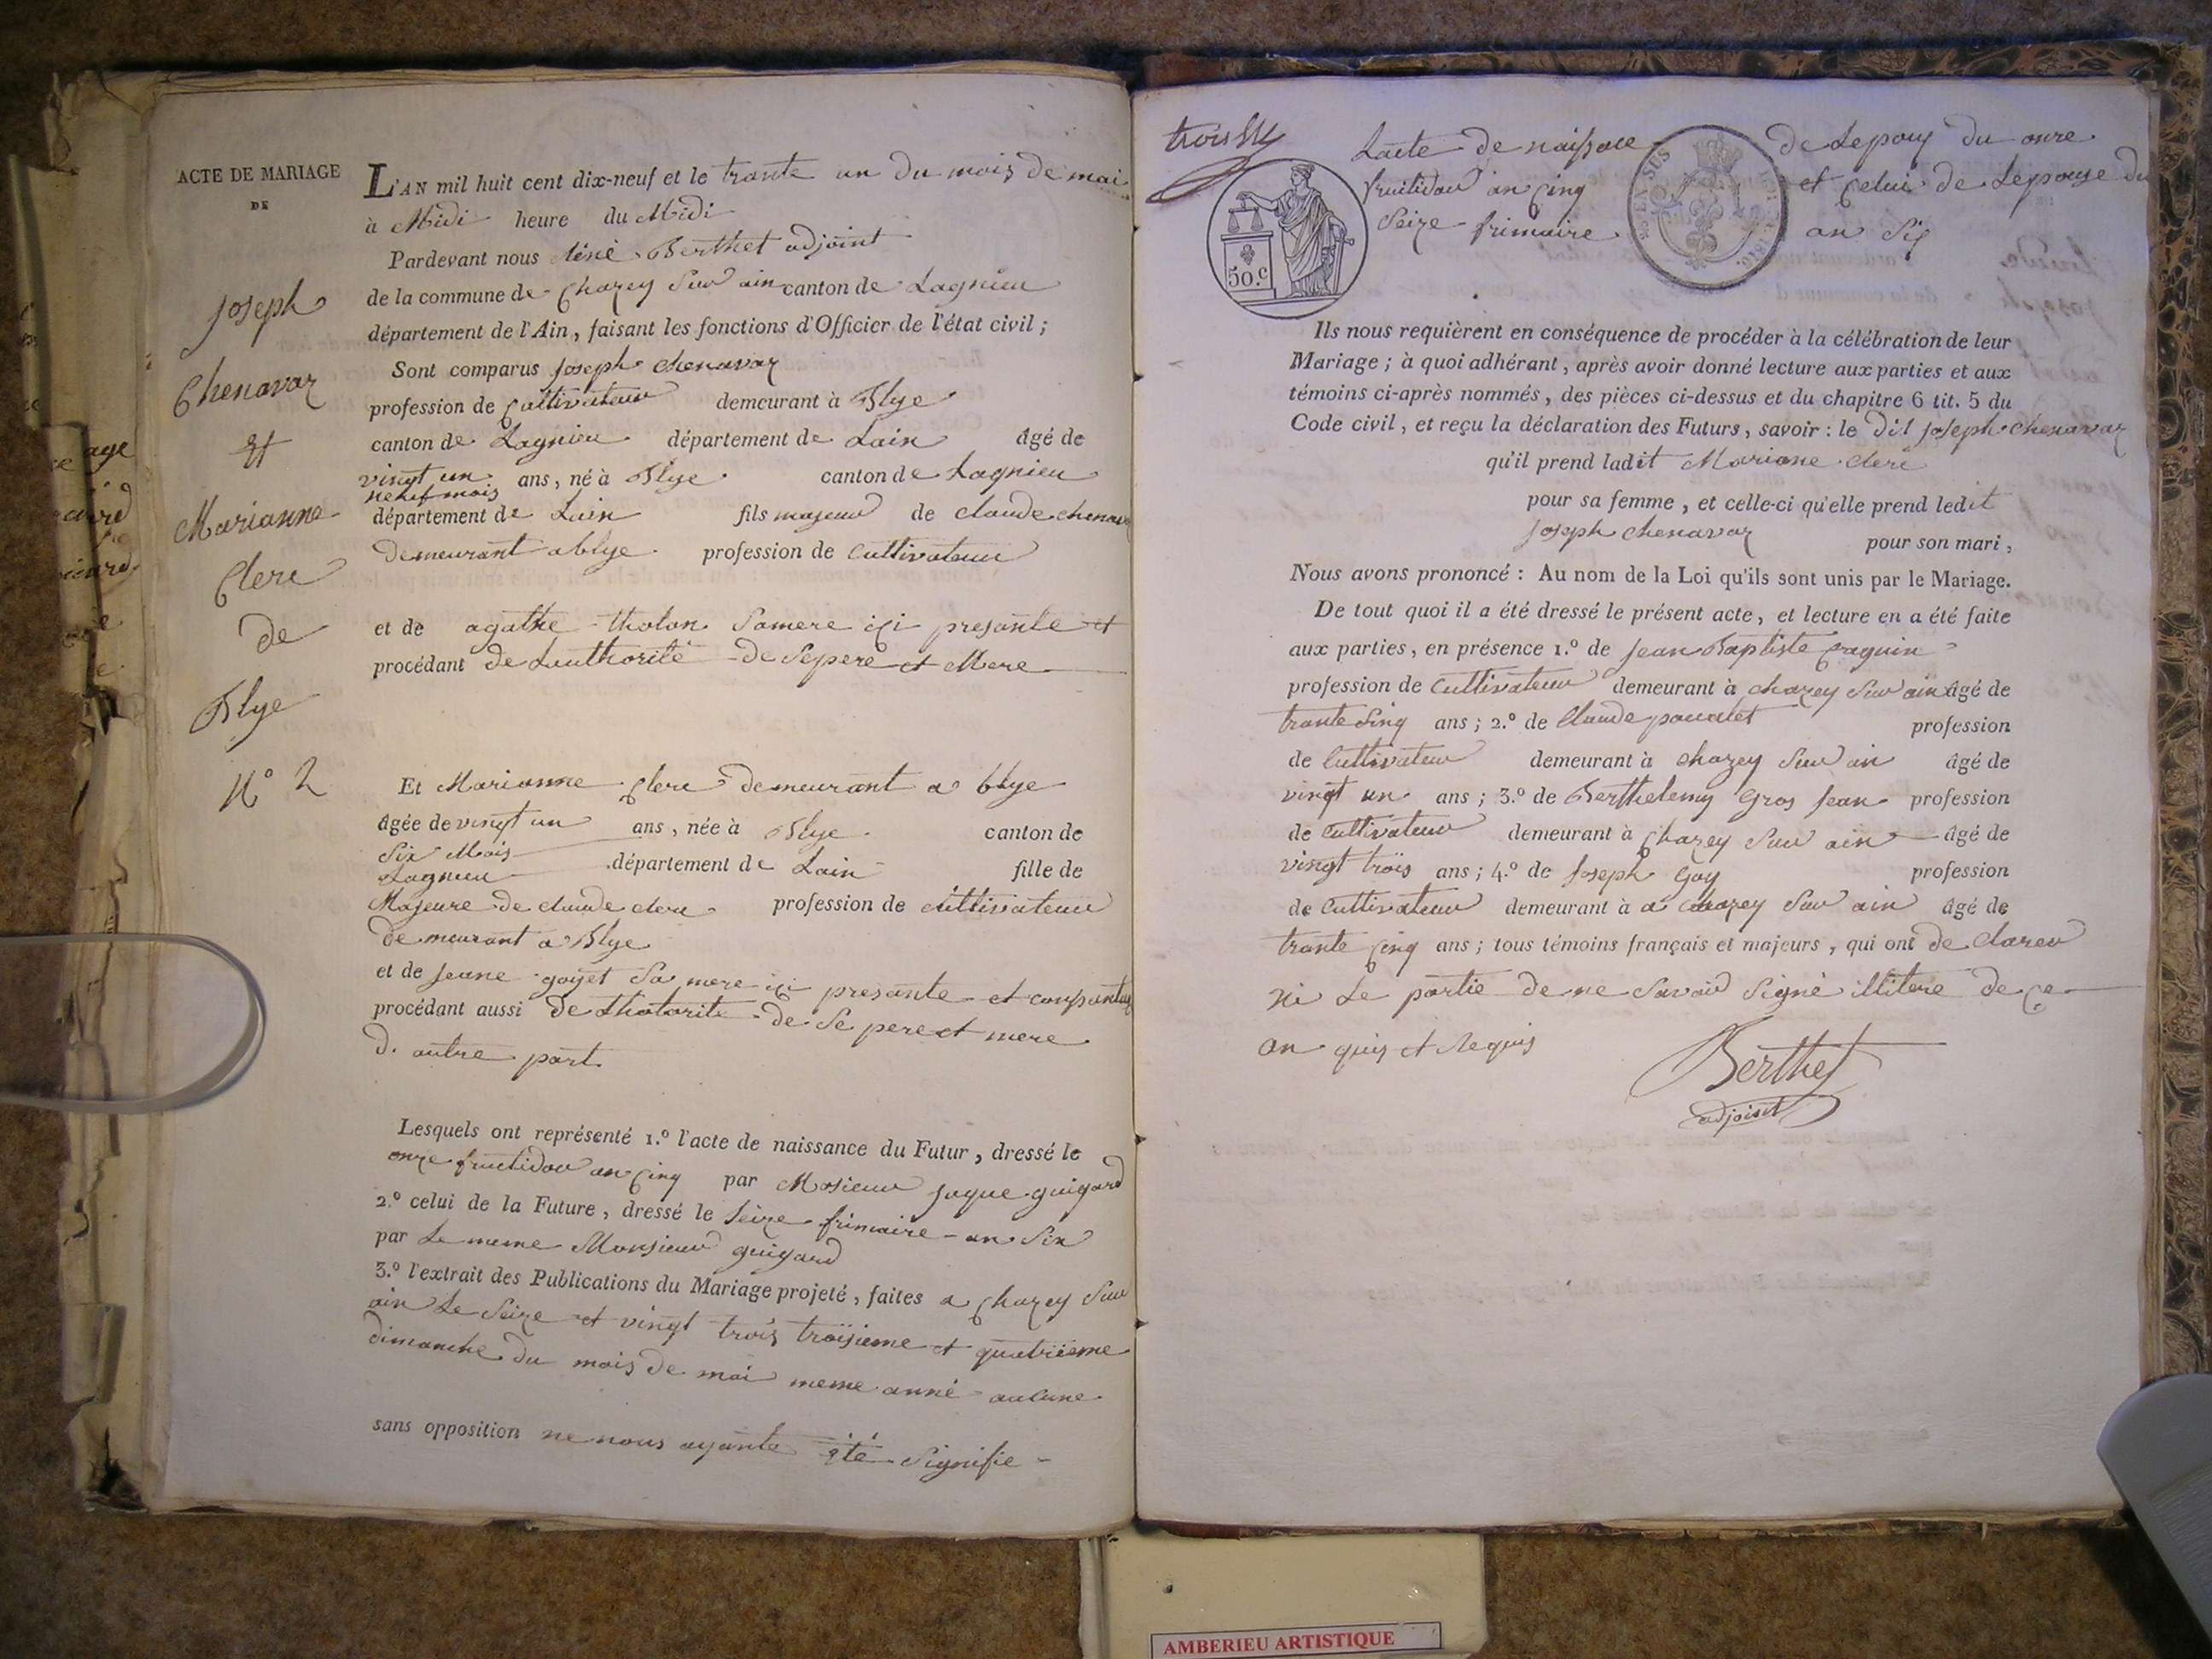 ACTE DE MARIAGE
DE
Joseph
Chenavaz
Et
Marianne
Clerc
de
Blye
N° 2
L'AN mil huit cent dix-neuf et le trante un du mois de mai
à Midi heure du Midi
Pardevant nous Berthet adjoint
de la commune de Chazey Sur ain canton de Lagnieu
département de l'Ain, faisant les fonctions d'Officier de l'état civil ;
Sont comparus Joseph chenavaz
profession de Cultivateur demeurant à Blye
canton de Lagnieu département de Lain âgé de
vingt un ans, né à Blye canton de Lagnieu
neuf mois
département de Lain fils majeur de claude chenava
demeurant a blye profession de Cultivateur
et de agathe tholon Samere ici presante et
procédant de Lauthorité de Sepere et Mere
Et Marianne Clerc demeurant a blye
âgée de vingt un ans, née à Blye canton de
Six Mois
Lagnieu département de Lain fille de
Majeure de claude clerc profession de cultivateur
demeurant a Blye
et de Jeane goyet Sa mere ici presante et consantan
procédant aussi de Lhotorite de Se pere et mere
d. autre part.
Lesquels ont représenté 1.° l'acte de naissance du Futur, dressé le
onze fructidor an Cinq par Mosieur Jaque guigard
2.° celui de la Future, dressé le Seize frimaire an Six
par Le meme Monsieur guigard
3.° l'extrait des Publications du Mariage projeté, faites a Chazey Sur
ain Le Seize et vingt trois troisieme et quatrieme
dimanche du mois de mai meme anné aucune
sans opposition ne nous ayante été Signifie
trois
50.c
EN SUS
Lacte de naissace de Lepoux du onze
fruitidor an Cinq et Celui de Lepouse du
Seize frimaire an Six
Ils nous requièrent en conséquence de procéder à la célébration de leur
Mariage ; à quoi adhérant, après avoir donné lecture aux parties et aux
témoins ci-après nommés, des pièces ci-dessus et du chapitre 6 tit. 5 du
Code civil, et reçu la déclaration des Futurs, savoir : le dit Joseph chenavaz
qu'il prend ladit Mariane clerc
pour sa femme, et celle-ci qu'elle prend ledit
Joseph chenavaz pour son mari,
Nous avons prononcé : Au nom de la Loi qu'ils sont unis par le Mariage.
De tout quoi il a été dressé le présent acte, et lecture en a été faite
aux parties, en présence 1.° de Jean Baptiste
profession de Cultivateur demeurant à chazey Sur ain âgé de
trante Sinq ans ; 2.° de Claude profession
de Cultivateur demeurant à chazey Sur ain âgé de
vingt un ans ; 3.° de Berthelemy Gros Jean profession
de Cultivateur demeurant à Chazey Sur ain âgé de
vingt trois ans ; 4.° de Joseph Goy profession
de Cultivateur demeurant à a chazey Sur ain âgé de
trante Cinq ans ; tous témoins français et majeurs, qui ont de Clareu
ni Le partie de ne Savoir Signé illitere de ce
an quis et Requis
Berthet
adjoint
AMBERIEU ARTISTIQUE